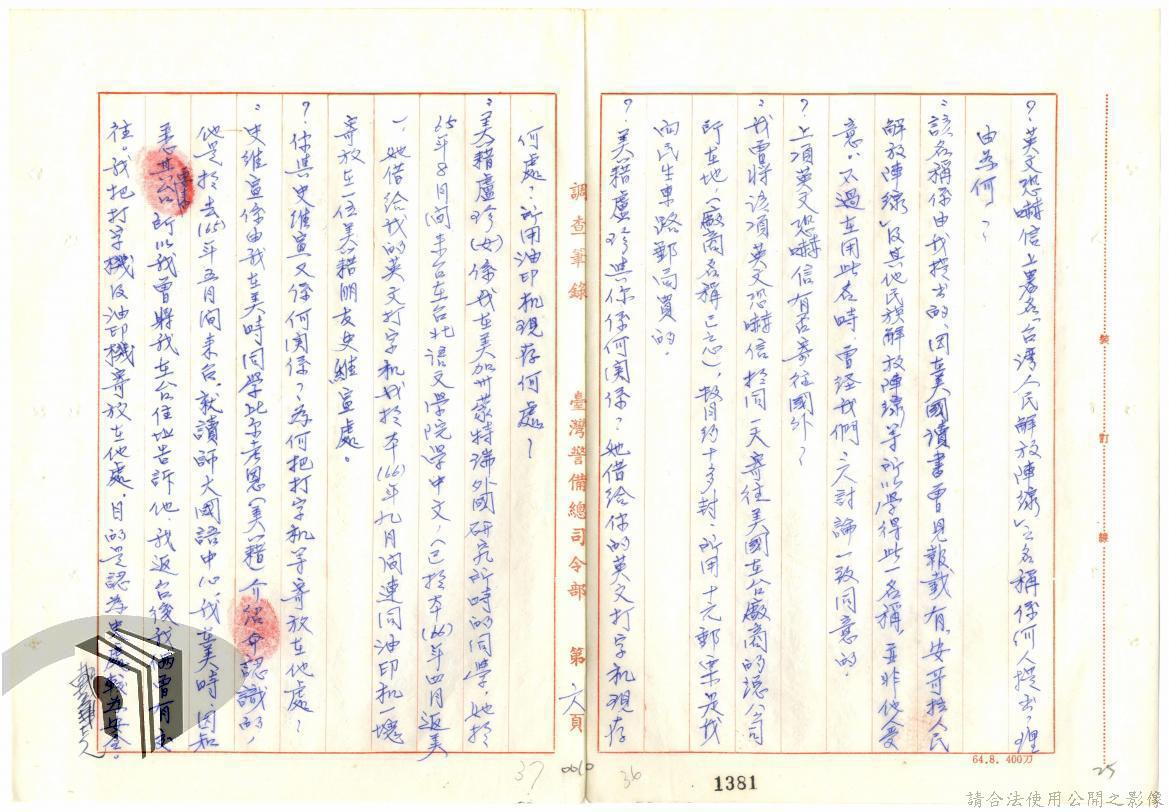 ？英文恐嚇信上署名「台湾人民解放陣線」之名稱係何人提出？理
由為何？
：該名稱係由我提出的，因在美國讀書曾見報載有「安哥拉人民
解放陣線」及其他民族解放陣線等所以學得此一名稱，並非他人受
意，不過在用此名時，曾經我們三人討論一致同意的。
？上項英文恐嚇信有否寄往國外？
：我曾將該項英文恐嚇信於同一天寄往美國在台廠商的總公司
所在地，（廠商名稱已忘），數目約十多封，所用十元郵票是我
向民生東路郵局買的。
？美籍盧珍與你係何関係？她借給你的英文打字机現存
何處？所用油印机現存何處？
：美籍盧珍（女）係我在美加州蒙特瑞外國研究所時的同學，她於
65年8月間来台在台北語文學院學中文，（已於本(66)年四月返美
），她借給我的英文打字机我於本(66)年九月間連同油印机一塊
寄放在一位美籍朋友史維宣處。
？你與史維宣又係何関係？為何把打字机等寄放在他處？
：史維宣係由我在美時同學比尔考恩（美籍）介绍而認識的，
他是於去(65)年五月間来台，就讀師大國語中心，我在美時，因知
其來台，所以我曾將我在台住址告訴他，我返台後我倆曾有交
往，我把打字機及油印機寄放在他處，目的是認為史處較為安全。
調查筆錄 臺灣警備總司令部 第六頁
裝 訂 線
64.8. 400刀
37 0010 36
1381
25
請合法使用公開之影像